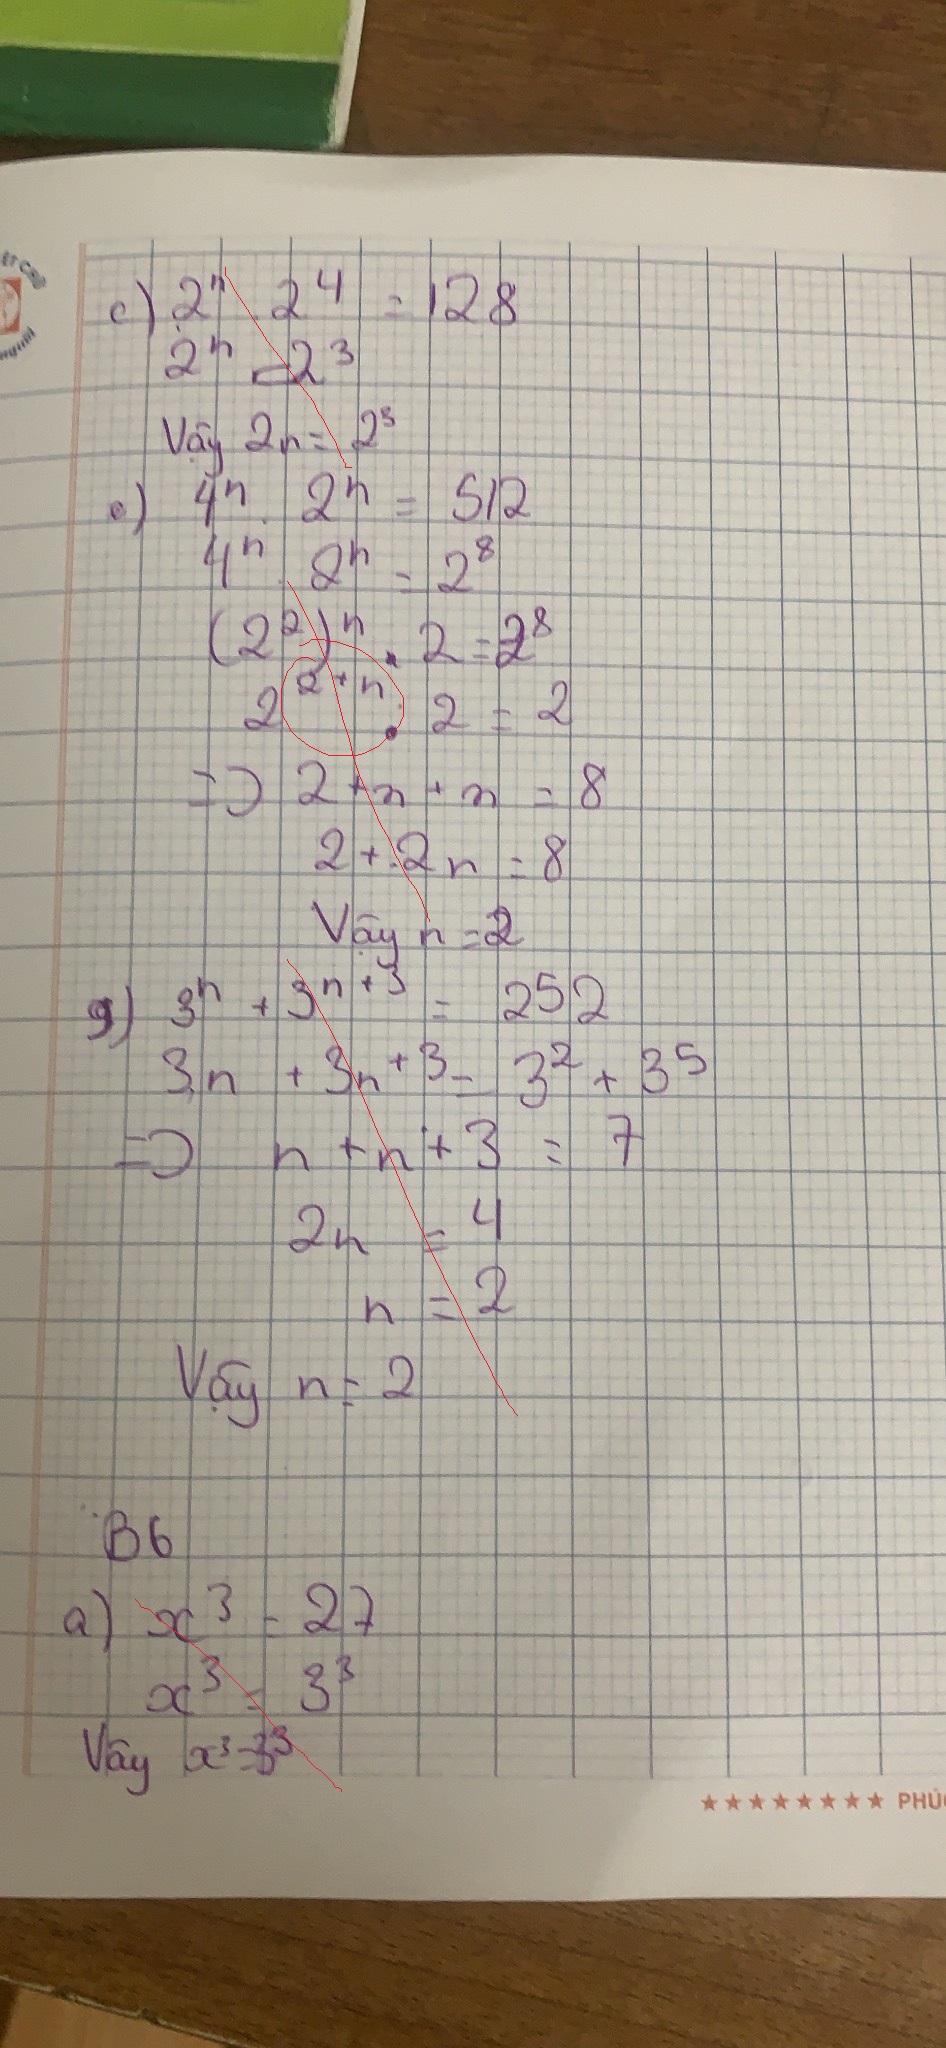 c) 2ⁿ . 2⁴ = 128
2ⁿ = 2³
Vậy 2n = 2³
e) 4ⁿ . 2ⁿ = 512
4ⁿ . 2ⁿ = 2⁸
(2²)ⁿ . 2 = 2⁸
2²⁺ⁿ . 2 = 2
=> 2 + n + n = 8
2 + 2n = 8
Vậy n = 2
g) 3ⁿ + 3ⁿ⁺³ = 252
3n + 3n⁺³ = 3² + 3⁵
=> n + n + 3 = 7
2n = 4
n = 2
Vậy n = 2
B6
a) x³ = 27
x³ = 3³
Vây x³ = 3³
★★★★★★★★ PHÚC